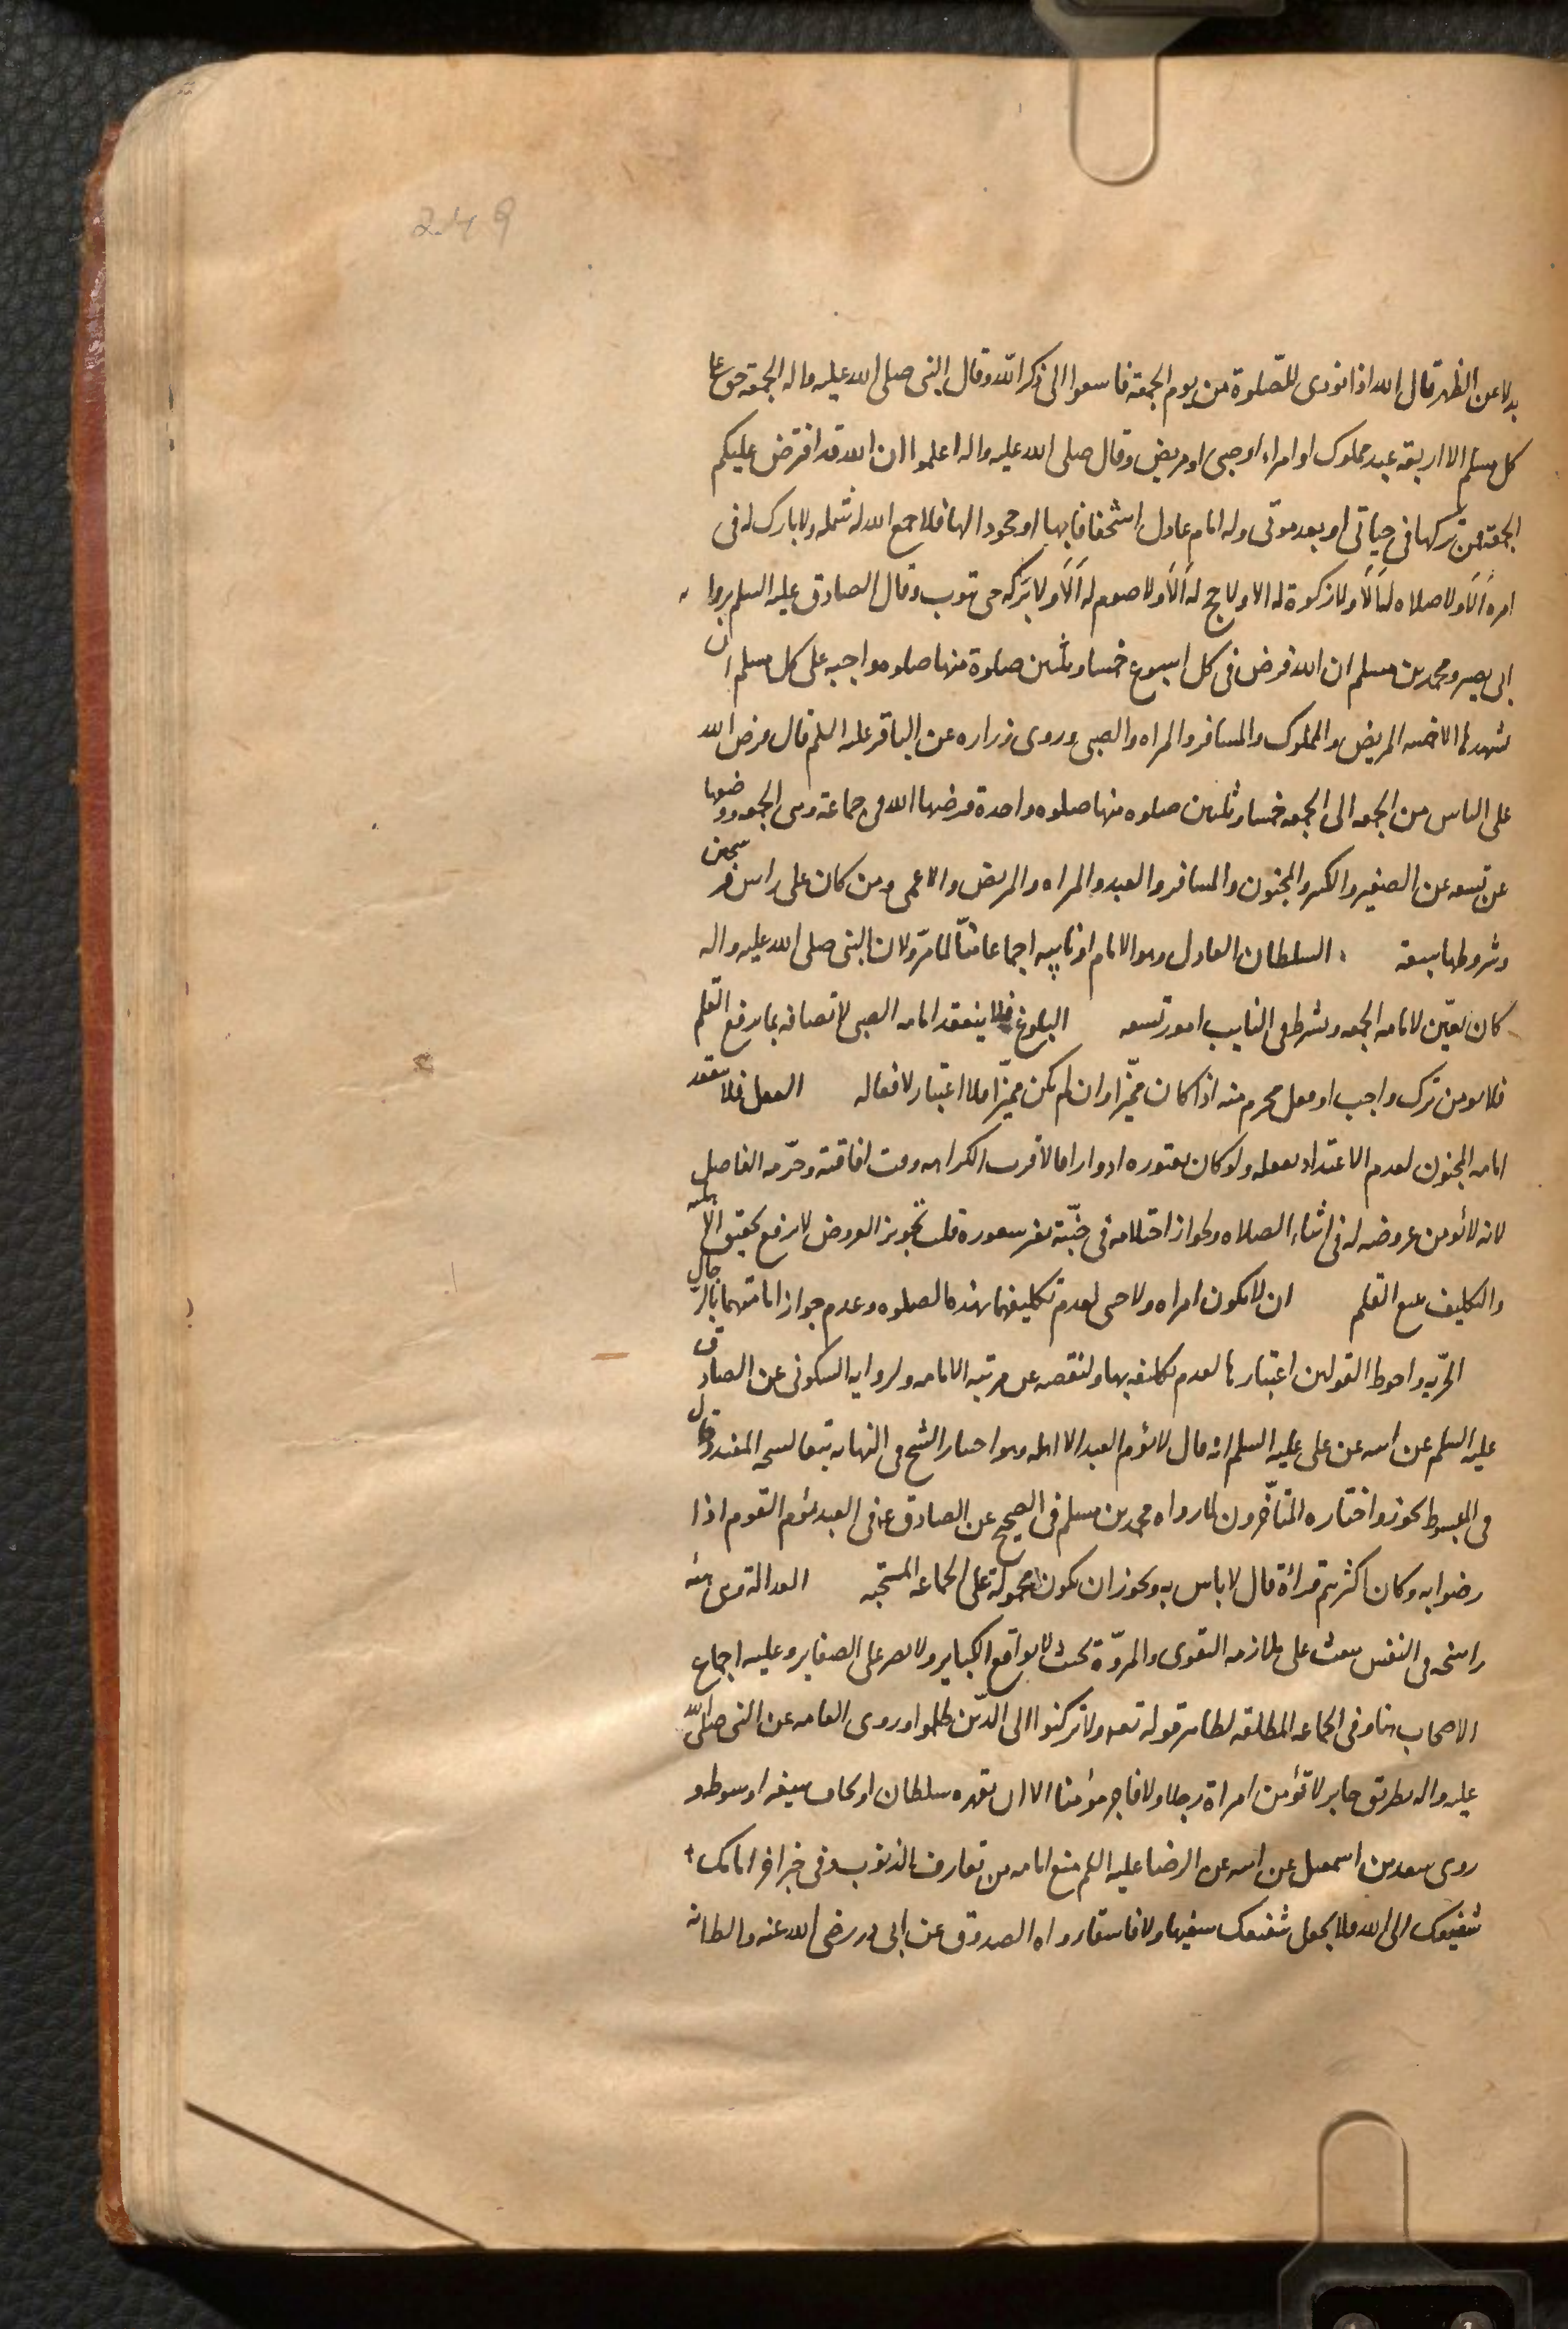 249
بدلا عن الظهر قال الله اذا نودى للصّلوة من يوم الجمعة فاسعوا الى ذكر الله وقال النبى صلى الله عليه واله الجمعة حق على
كل مسلم الا اربعة عبد مملوك او امراه او صبى او مريض وقال صلى الله عليه واله اعلموا ان الله قد افترض عليكم
الجمعة فمن تركها فى حياتى او بعد موتى وله امام عادل استخفافا بها او جحودا لها فلا جمع الله له شمله ولا بارك له فى
امره اَلاَ ولا صلاه له اَلاَ ولا زكوة له الا ولا حج له اَلاَ ولا صوم له اَلاَ ولا بركه حتى يتوب وقال الصادق عليه السلم بروايه
ابى بصير ومحمد بن مسلم ان الله فرض فى كل اسبوع خمسا وثلثين صلوة منها صلوه واجبه على كل مسلم ان
يشهدها الا خمسه المريض والمملوك والمسافر والمراه والصبى وروى زراره عن الباقر عليه السلم قال فرض الله
على الناس من الجمعه الى الجمعه خمسا وثلثين صلوه منها صلوه واحدة فرضها الله فى جماعة وهى الجمعه ووضعها
عن تسعه عن الصغير والكبير والمجنون والمسافر والعبد والمراه والمريض والاعمى ومن كان على راس فرسخين
وشروطها سبعة السلطان العادل وهو الامام او نايبه اجماعا منّا لما مرّ ولان النبى صلى الله عليه واله
كان يعيّن لامامه الجمعه ويشترط فى النايب امور تسعه البلوغ فلا ينعقد امامه الصبى لاتصافه بما يرفع القلم
فلا يومن ترك واجب او فعل محرم منه اذا كان مميّزا وان لم يكن مميّزا فلا اعتبار لافعاله العقل فلا ينعقد
امامه المجنون لعدم الاعتداد بفعله ولو كان يعتوره ادوارا فالاقرب الكراهه وقت افاقته وحرّمه الفاضل
لانه لا يؤمن عروضه له فى اثناء الصلاه ولجواز احتلامه فى جنّته بغير شعوره قلت تجويز العروض لا يرفع تحقيق الاهليه
والتكليف يتبع القلم ان لا يكون امراه ولا خنثى لعدم تكليفهما بهذه الصلوه وعدم جواز امامتهما بالرجال
الحريه واحوط القولين اعتبارها لعدم تكليفه بها ولنقصه عن مرتبه الامامه ولروايه السكونى عن الصادق
عليه السلم عن ابيه عن على عليه السلم انه قال لا يؤم العبد الا اهله وهو اختيار الشيخ فى النهايه تبعا لشيخه المفيد وقال
فى المبسوط يجوز واختاره المتأخّرون لما رواه محمد بن مسلم فى الصحيح عن الصادق ع فى العبد يؤم القوم اذا
رضوا به وكان اكثرهم قراءة قال لا باس به ويجوز ان يكون محمولة على الجماعه المستحبه العدالة وهى هيئه
راسخه فى النفس تبعث على ملازمه التقوى والمروّة بحيث لا يواقع الكباير ولا يصر على الصغاير وعليه اجماع
الاصحاب هنا وفى الجماعه المطلقه لظاهر قوله تعه ولا تركنوا الى الذين ظلموا وروى العامه عن النبى صلى الله
عليه واله بطريق جابر لا تؤمن امراة رجلا ولا فاجر مؤمنا الا ان يقهره سلطان او يخاف سيفه او سوطه و
روى سعد بن اسمعيل عن ابيه عن الرضا عليه السلم منع امامه من تعارف الذنوب وفى خبر اخر امامك
شفيعك الى الله فلا تجعل شفيعك سفيها ولا فاسقا رواه الصدوق عن ابى ذر رضى الله عنه والظانه